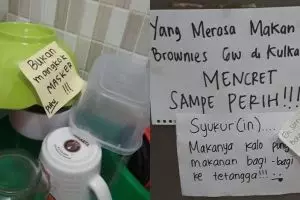 Bukan
mangkok
MASKER
!!!
Yang Merasa Makan
Brownies Gw di Kulkas
MENCRET
SAMPE PERIH!!!
Syukur(in)....
Makanya kalo punya
makanan bagi-bagi
ke tetangga!!!